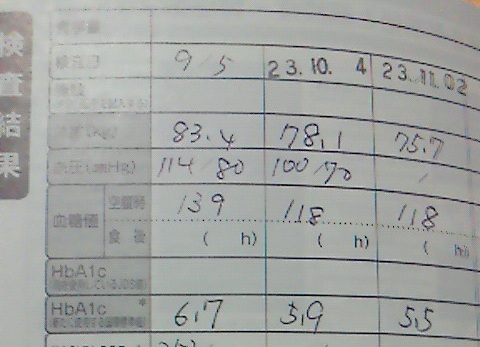 検査結果
検査日 9/5 23.10.4 23.11.02
体重(kg) 83.4 78.1 75.7
血圧(mmHg) 114/80 100/70 /
血糖値 空腹時 139 118 118
食後 ( h) ( h) ( h)
HbA1c
HbA1c * 6.7 5.9 5.5